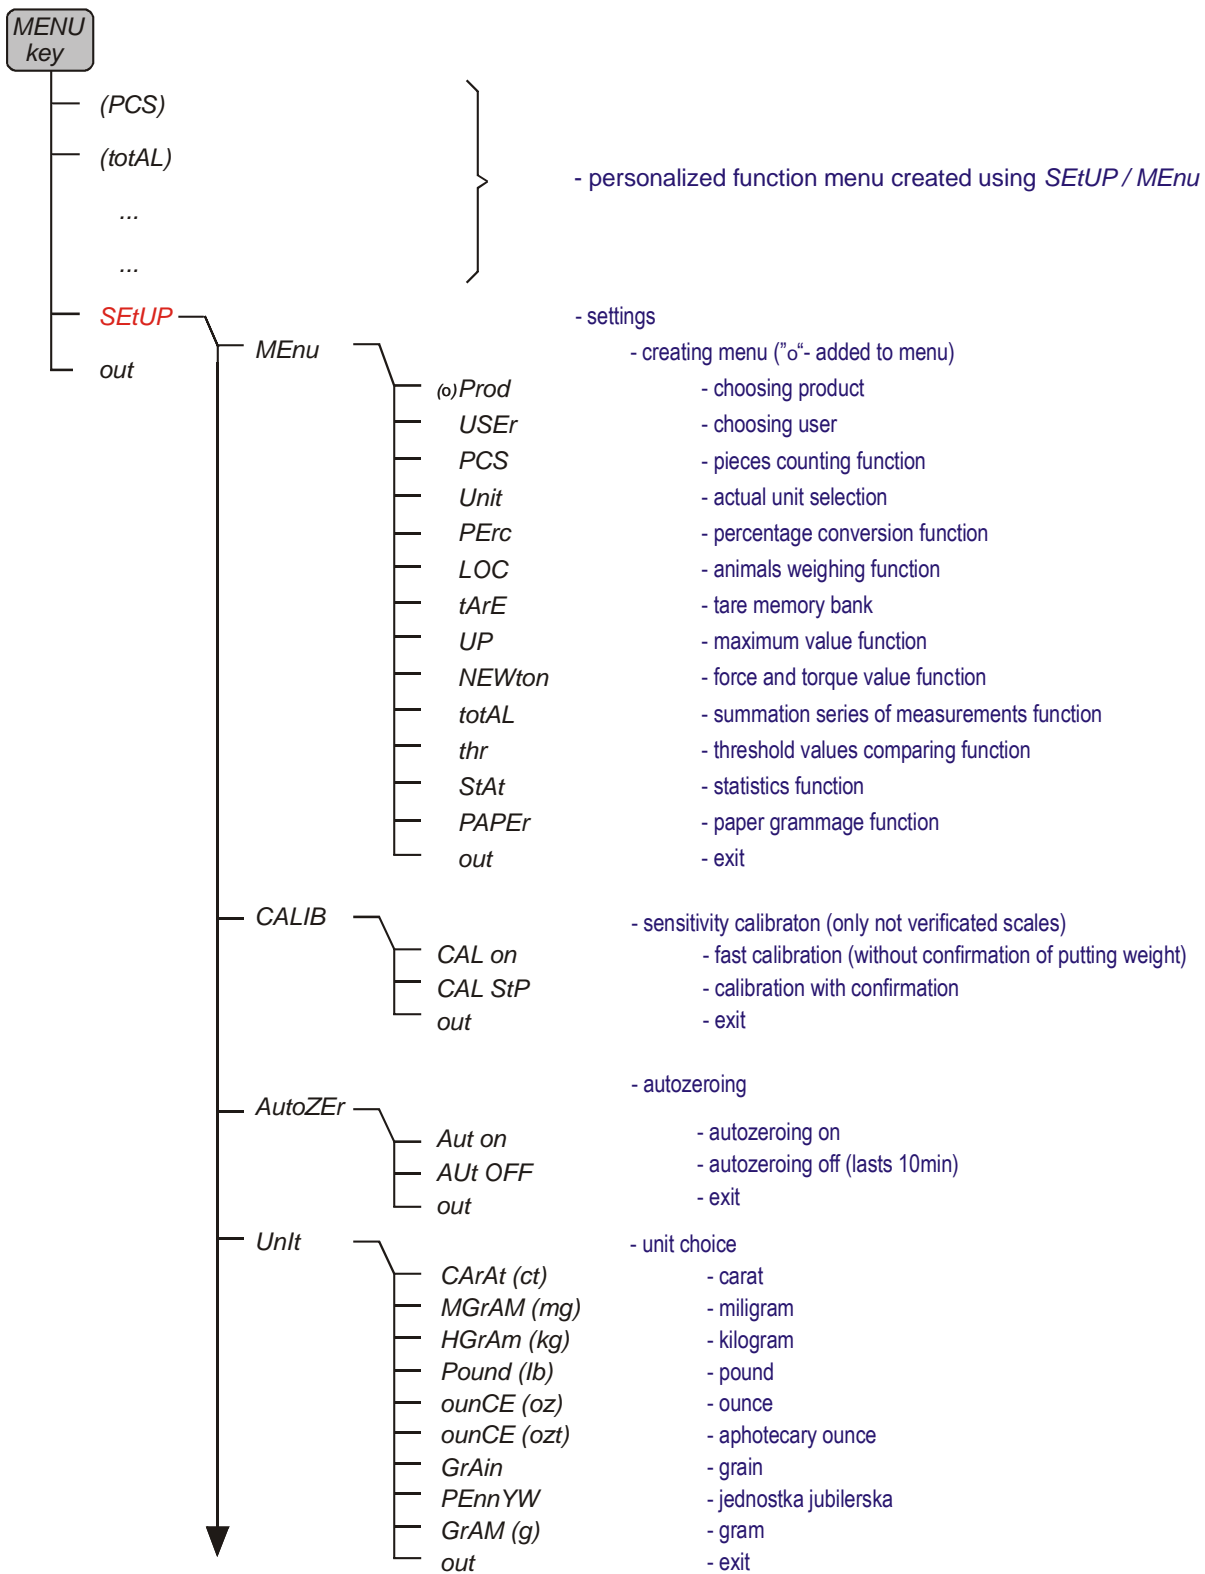 MENU
key
(PCS)
(totAL)
...
...
- personalized function menu created using SEtUP / MEnu
SEtUP - settings
MEnu - creating menu ("o“- added to menu)
out
(o)Prod - choosing product
USEr - choosing user
PCS - pieces counting function
Unit - actual unit selection
PErc - percentage conversion function
LOC - animals weighing function
tArE - tare memory bank
UP - maximum value function
NEWton - force and torque value function
totAL - summation series of measurements function
thr - threshold values comparing function
StAt - statistics function
PAPEr - paper grammage function
out - exit
CALIB - sensitivity calibraton (only not verificated scales)
CAL on - fast calibration (without confirmation of putting weight)
CAL StP - calibration with confirmation
out - exit
AutoZEr - autozeroing
Aut on - autozeroing on
AUt OFF - autozeroing off (lasts 10min)
out - exit
UnIt - unit choice
CArAt (ct) - carat
MGrAM (mg) - miligram
HGrAm (kg) - kilogram
Pound (lb) - pound
ounCE (oz) - ounce
ounCE (ozt) - aphotecary ounce
GrAin - grain
PEnnYW - jednostka jubilerska
GrAM (g) - gram
out - exit